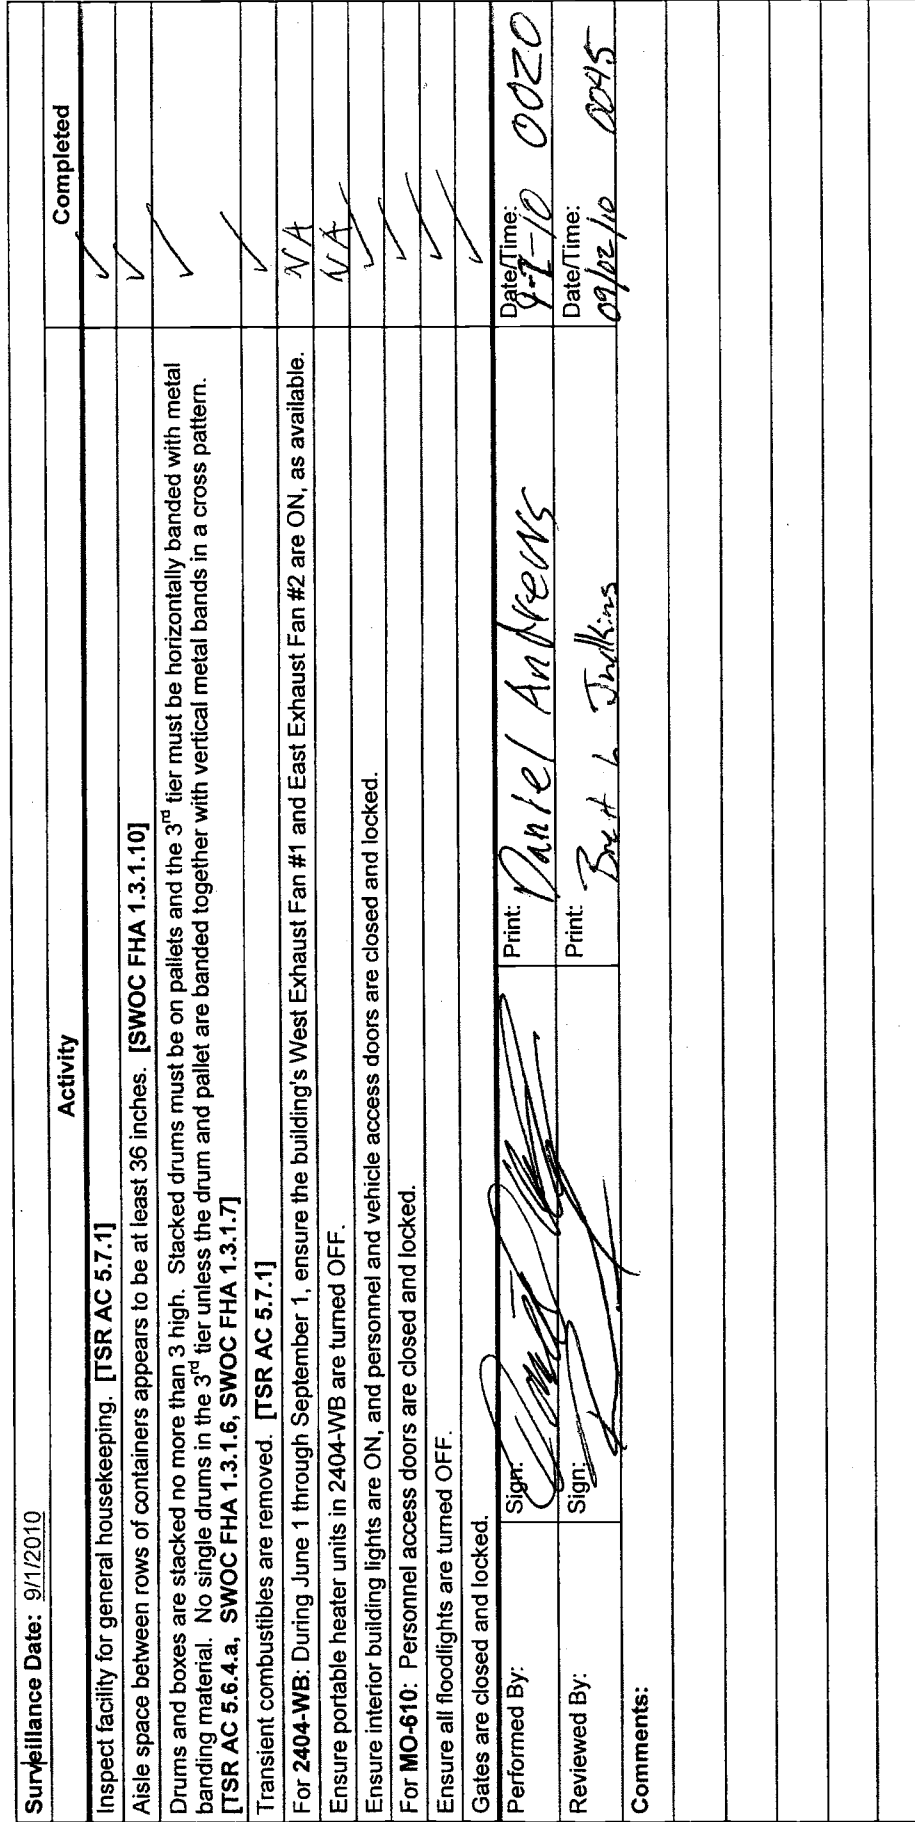 Surveillance Date: 9/1/2010
Activity Completed
Inspect facility for general housekeeping. [TSR AC 5.7.1] ✓
Aisle space between rows of containers appears to be at least 36 inches. [SWOC FHA 1.3.1.10] ✓
Drums and boxes are stacked no more than 3 high. Stacked drums must be on pallets and the 3rd tier must be horizontally banded with metal
banding material. No single drums in the 3rd tier unless the drum and pallet are banded together with vertical metal bands in a cross pattern. ✓
[TSR AC 5.6.4.a, SWOC FHA 1.3.1.6, SWOC FHA 1.3.1.7]
Transient combustibles are removed. [TSR AC 5.7.1] ✓
For 2404-WB: During June 1 through September 1, ensure the building's West Exhaust Fan #1 and East Exhaust Fan #2 are ON, as available. NA
Ensure portable heater units in 2404-WB are turned OFF. NA
Ensure interior building lights are ON, and personnel and vehicle access doors are closed and locked. ✓
For MO-610: Personnel access doors are closed and locked. ✓
Ensure all floodlights are turned OFF. ✓
Gates are closed and locked. ✓
Performed By: Sign: Print: Daniel Andrews Date/Time: 9-2-10 0020
Reviewed By: Sign: Print: Brett L Judkins Date/Time: 09/02/10 0045
Comments: